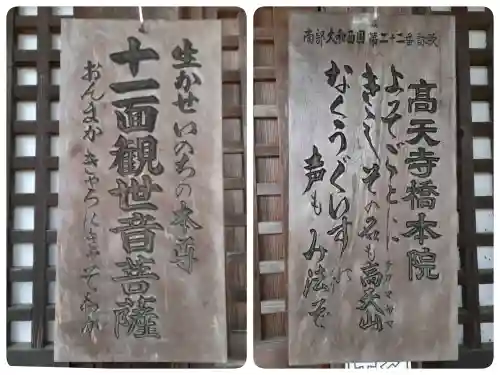 生かせいのちの本尊
十一面観世音菩薩
おんまかきゃろにきゃそわか
南部大和西国第二十二番御詠歌
高天寺橋本院
よそごとに
きくもその名も高天山
なくうぐいすの
声もみ法ぞ